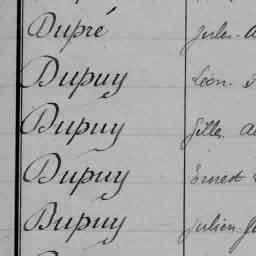 Dupré Jules
Dupuy Léon
Dupuy Gilles
Dupuy Ernest
Dupuy Julien